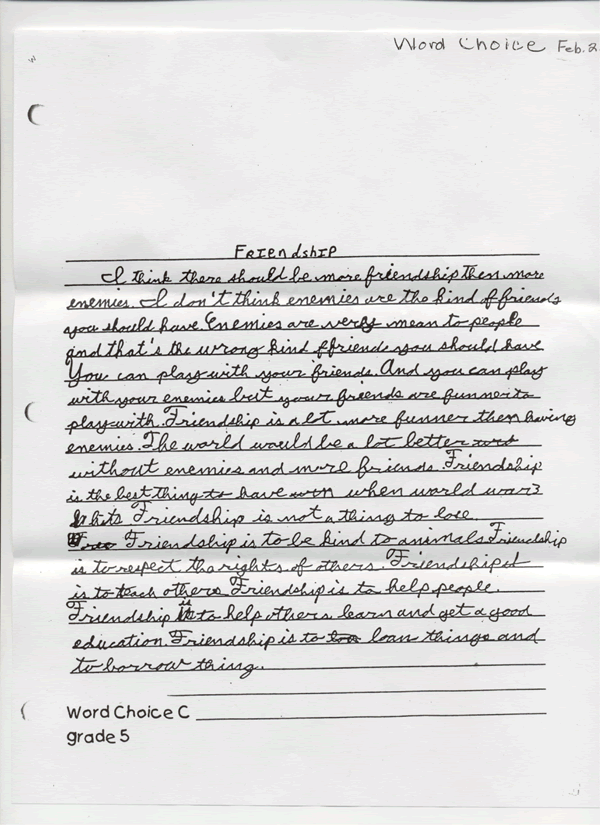 Word Choice Feb. 2
Friendship
I think there should be more friendship then more
enemies. I don't think enemies are the kind of friends
you should have Enemies are very mean to people
and that's the wrong kind ffriends you should have
You can play with your friends. And you can play
with your enemies but your friends are funner to
play with. Friendship is a lot more funner then having
enemies. The world would be a lot better
without enemies and more friends. Friendship
is the best thing to have when world war 3
hits Friendship is not a thing to lose.
Friendship is to be kind to animals Friendship
is to respect the rights of others. Friendship
is to teach others. Friendship is to help people.
Friendship is to help others learn and get a good
education. Friendship is to loan things and
to borrow thing.
Word Choice C
grade 5